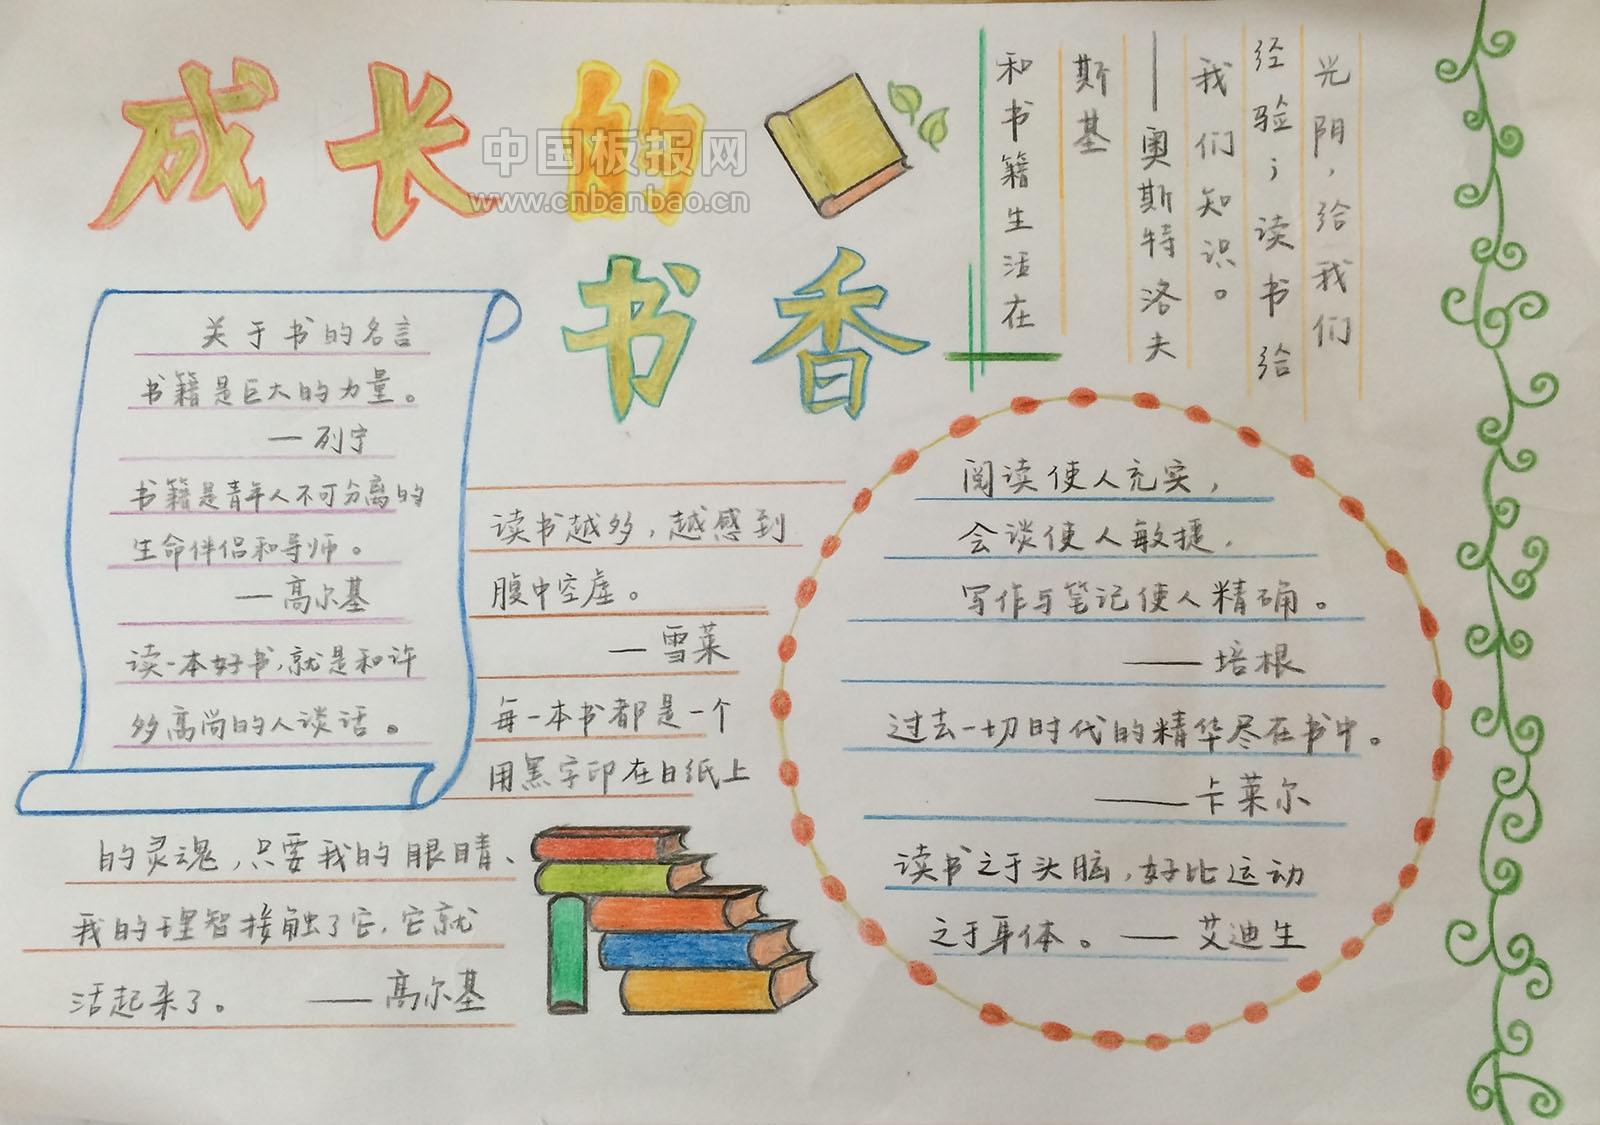 成长的
书香
中国板报网
www.cnbanbao.cn
光阴,给我们
经验;读书给
我们知识。
——奥斯特洛夫
斯基
和书籍生活在
关于书的名言
书籍是巨大的力量。
—列宁
书籍是青年人不可分离的
生命伴侣和导师。
—高尔基
读一本好书,就是和许
多高尚的人谈话。
读书越多,越感到
腹中空虚。
—雪莱
每一本书都是一个
用黑字印在白纸上
的灵魂,只要我的眼睛、
我的理智接触了它,它就
活起来了。 ——高尔基
阅读使人充实,
会谈使人敏捷,
写作与笔记使人精确。
——培根
过去一切时代的精华尽在书中。
——卡莱尔
读书之于头脑,好比运动
之于身体。——艾迪生